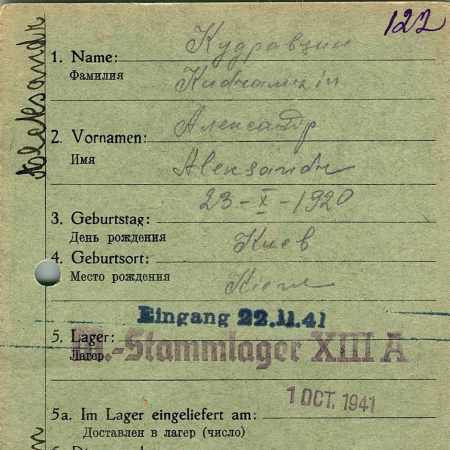 122
Aleksandr
1. Name: Кудравзин
Фамилия
2. Vornamen: Александр
Имя Aleksandr
23-X-1920
3. Geburtstag:
День рождения Киев
4. Geburtsort:
Место рождения Kiew
Eingang 22.11.41
5. Lager: M.-Stammlager XIII A
Лагерь
1 OCT. 1941
5a. Im Lager eingeliefert am:
Доставлен в лагерь (число)